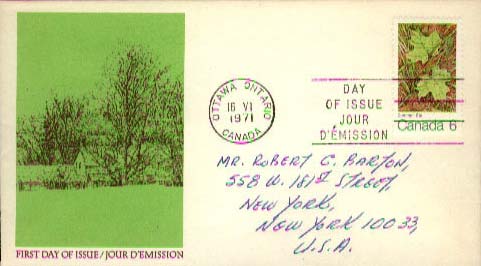 OTTAWA ONTARIO
16 VI
1971
CANADA
DAY
OF ISSUE
JOUR
D'ÉMISSION
Canada 6
MR. ROBERT C. BARTON,
558 W. 181ST STREET,
NEW YORK,
NEW YORK 10033,
U.S.A.
FIRST DAY OF ISSUE/JOUR D'ÉMISSION